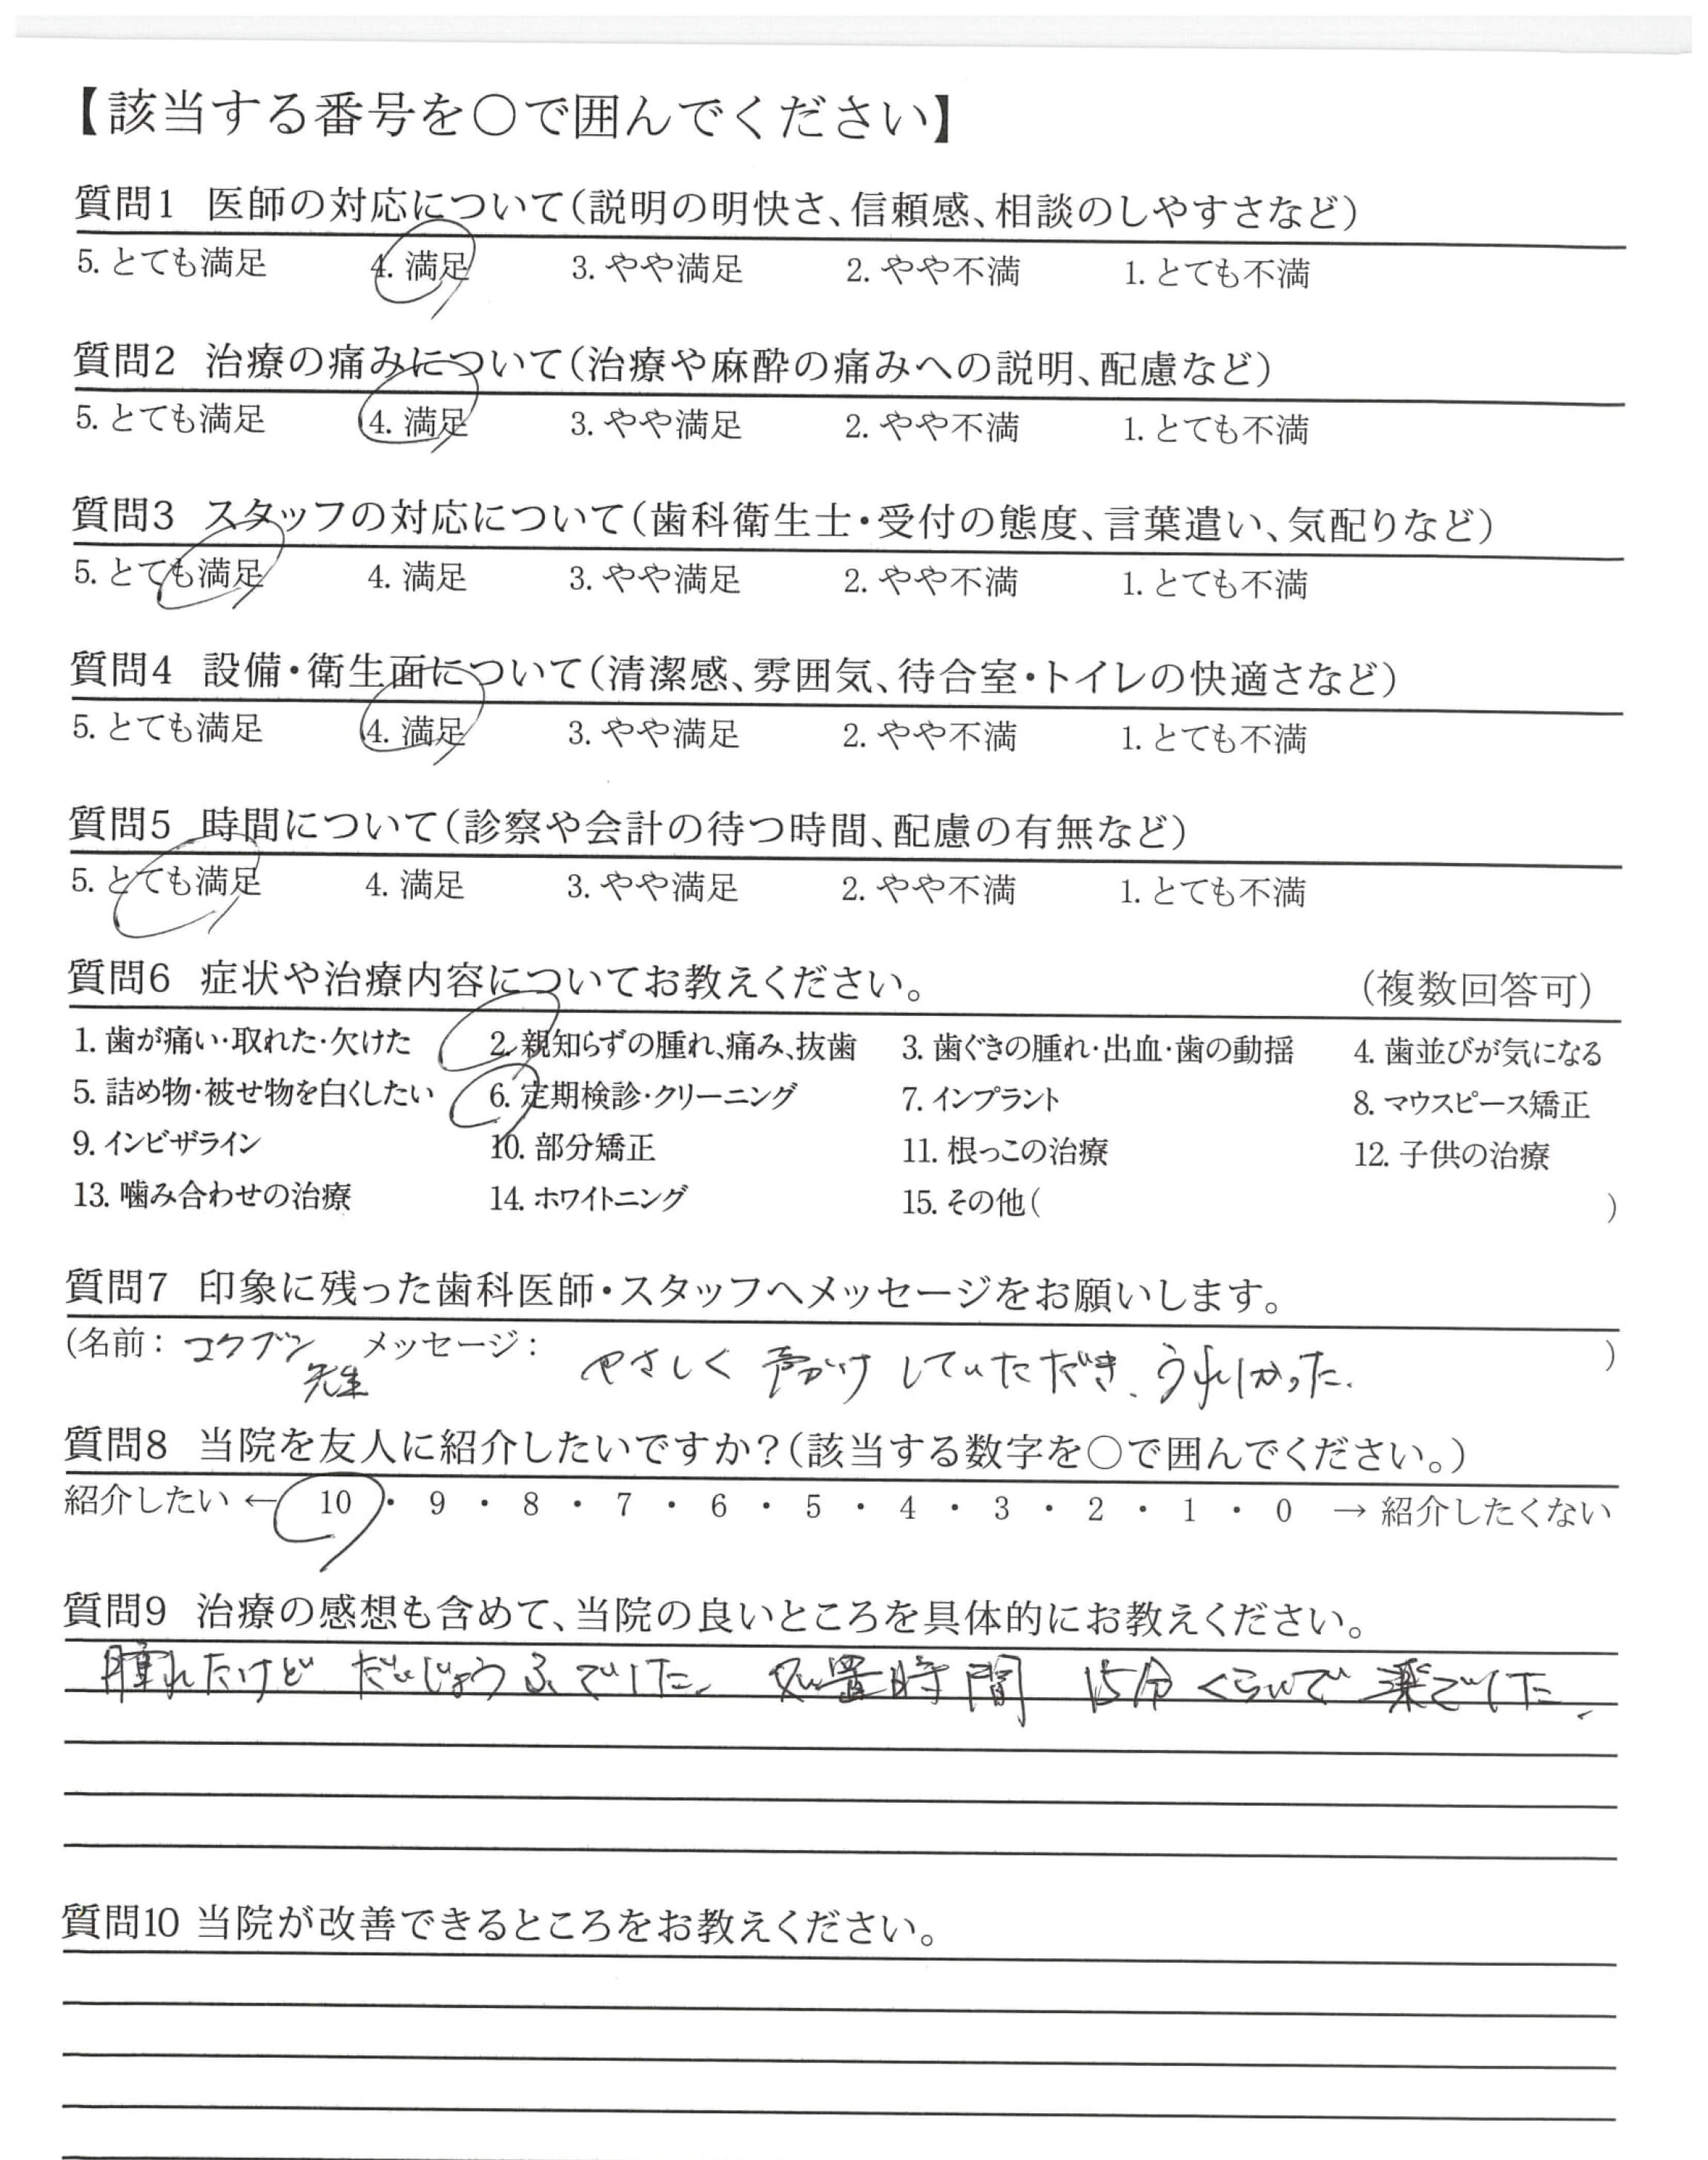 【該当する番号を○で囲んでください】
質問1 医師の対応について(説明の明快さ、信頼感、相談のしやすさなど)
5. とても満足 4. 満足 3. やや満足 2. やや不満 1. とても不満
質問2 治療の痛みについて(治療や麻酔の痛みへの説明、配慮など)
5. とても満足 4. 満足 3. やや満足 2. やや不満 1. とても不満
質問3 スタッフの対応について(歯科衛生士・受付の態度、言葉遣い、気配りなど)
5. とても満足 4. 満足 3. やや満足 2. やや不満 1. とても不満
質問4 設備・衛生面について(清潔感、雰囲気、待合室・トイレの快適さなど)
5. とても満足 4. 満足 3. やや満足 2. やや不満 1. とても不満
質問5 時間について(診察や会計の待つ時間、配慮の有無など)
5. とても満足 4. 満足 3. やや満足 2. やや不満 1. とても不満
質問6 症状や治療内容についてお教えください。 (複数回答可)
1. 歯が痛い・取れた・欠けた 2. 親知らずの腫れ、痛み、抜歯 3. 歯ぐきの腫れ・出血・歯の動揺 4. 歯並びが気になる
5. 詰め物・被せ物を白くしたい 6. 定期検診・クリーニング 7. インプラント 8. マウスピース矯正
9. インビザライン 10. 部分矯正 11. 根っこの治療 12. 子供の治療
13. 噛み合わせの治療 14. ホワイトニング 15. その他( )
質問7 印象に残った歯科医師・スタッフへメッセージをお願いします。
(名前: コクブン 先生 メッセージ: やさしく 声かけ していただき、うれしかった。 )
質問8 当院を友人に紹介したいですか?(該当する数字を○で囲んでください。)
紹介したい ← 10 ・ 9 ・ 8 ・ 7 ・ 6 ・ 5 ・ 4 ・ 3 ・ 2 ・ 1 ・ 0 → 紹介したくない
質問9 治療の感想も含めて、当院の良いところを具体的にお教えください。
腫れたけど だいじょうぶでした。 処置時間 15分くらいで 楽でした。
質問10 当院が改善できるところをお教えください。